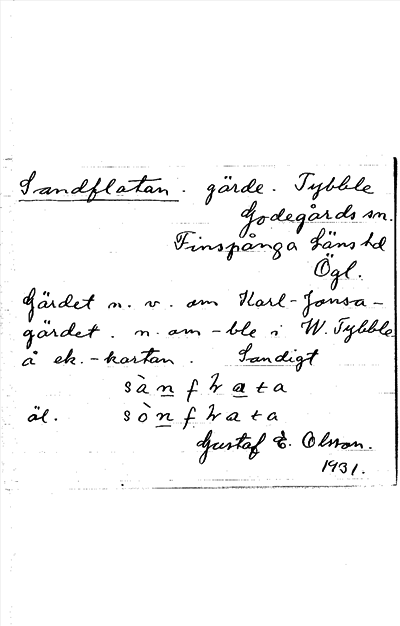 Sandflatan. gärde. Tybble
Godegårds sn.
Finspånga Läns hd
Ögl.
Gärdet n. v. om Karl-Jonsa-
gärdet. n. om -ble i W. Tybble
å ek.-kartan. Sandigt
sàn f
äl. sòn f
Gustaf E. Olsson.
1931.